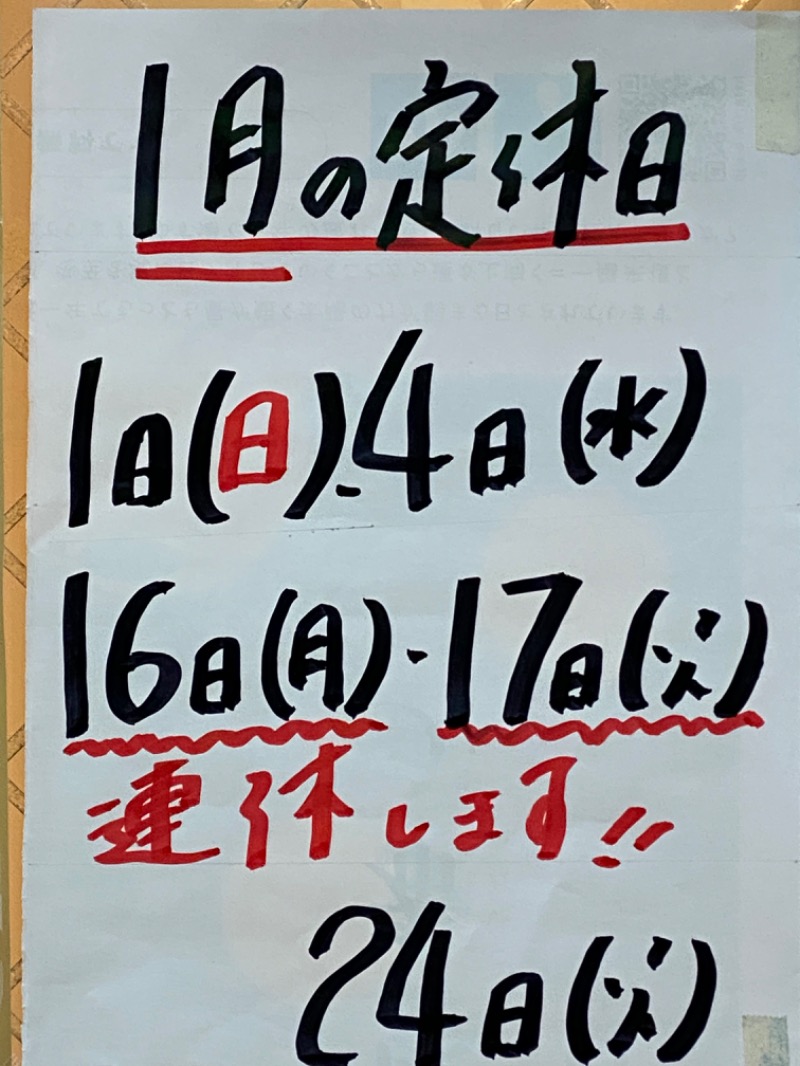 1月の定休日
1日(日)-4日(水)
16日(月)・17日(火)
連休します!!
24日(火)